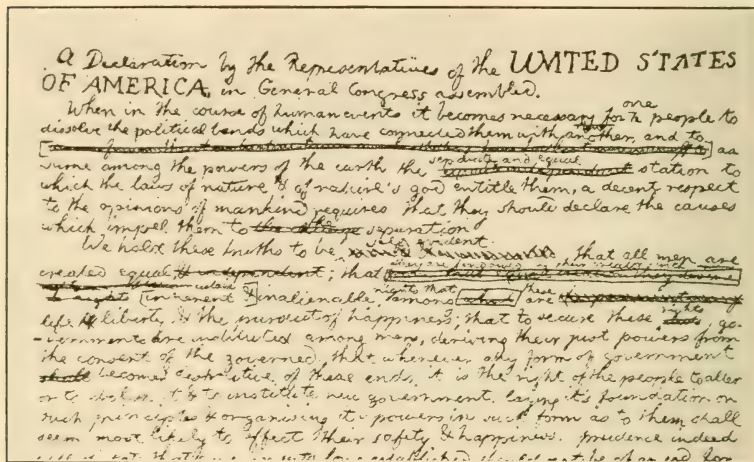 A Declaration by the Representatives of the UNITED STATES
OF AMERICA, in General Congress assembled.
When in the course of human events it becomes necessary for one people to
dissolve the political bands which have connected them with another, and to
as
separate and equal
sume among the powers of the earth the station to
which the laws of nature & of nature's god entitle them, a decent respect
to the opinions of mankind requires that they should declare the causes
which impel them to the separation.
self evident
We hold these truths to be that all men are
created equal & independent; that
inherent & inalienable rights that among these are
rights
life, liberty, & the pursuit of happiness; that to secure these, go-
-vernments are instituted among men, deriving their just powers from
the consent of the governed, that whenever any form of government
shall becomes destructive of these ends, it is the right of the people to alter
or to abolish it, & to institute new government, laying it's foundation on
such principles & organising it's powers in such form as to them shall
seem most likely to effect their safety & happiness. prudence indeed